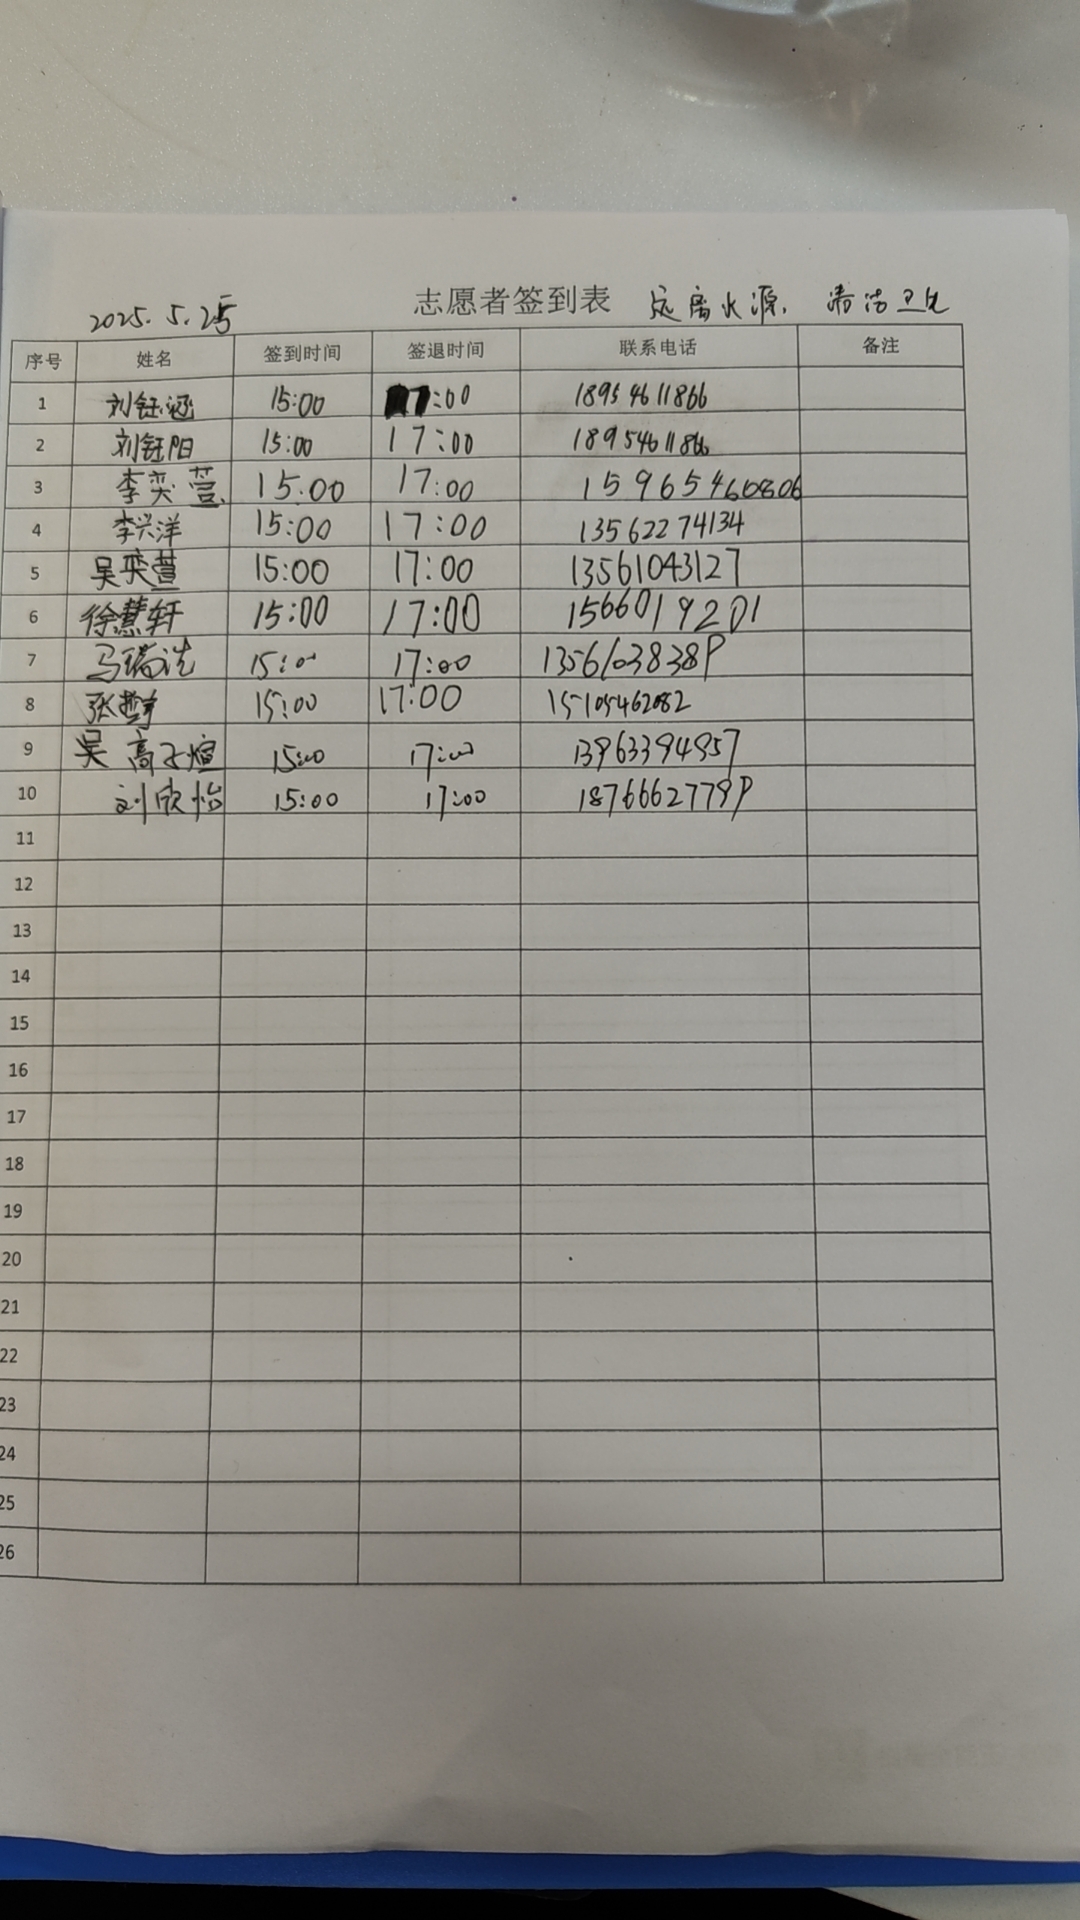 志愿者签到表 远离水源. 清洁卫生
2025.5.25
序号 姓名 签到时间 签退时间 联系电话 备注
1 刘钰涵 15:00 17:00 18954611866
2 刘钰阳 15:00 17:00 18954611866
3 李奕萱 15.00 17:00 15965460806
4 李兴洋 15:00 17:00 13562274134
5 吴奕萱 15:00 17:00 13561043127
6 徐慧轩 15:00 17:00 1566019201
7 马瑞 15:00 17:00 13561038389
8 张哲 15:00 17:00 15105462082
9 吴 高子煊 15:00 17:00 13963394957
10 刘欣怡 15:00 17:00 18766627799
11
12
13
14
15
16
17
18
19
20
21
22
23
24
25
26